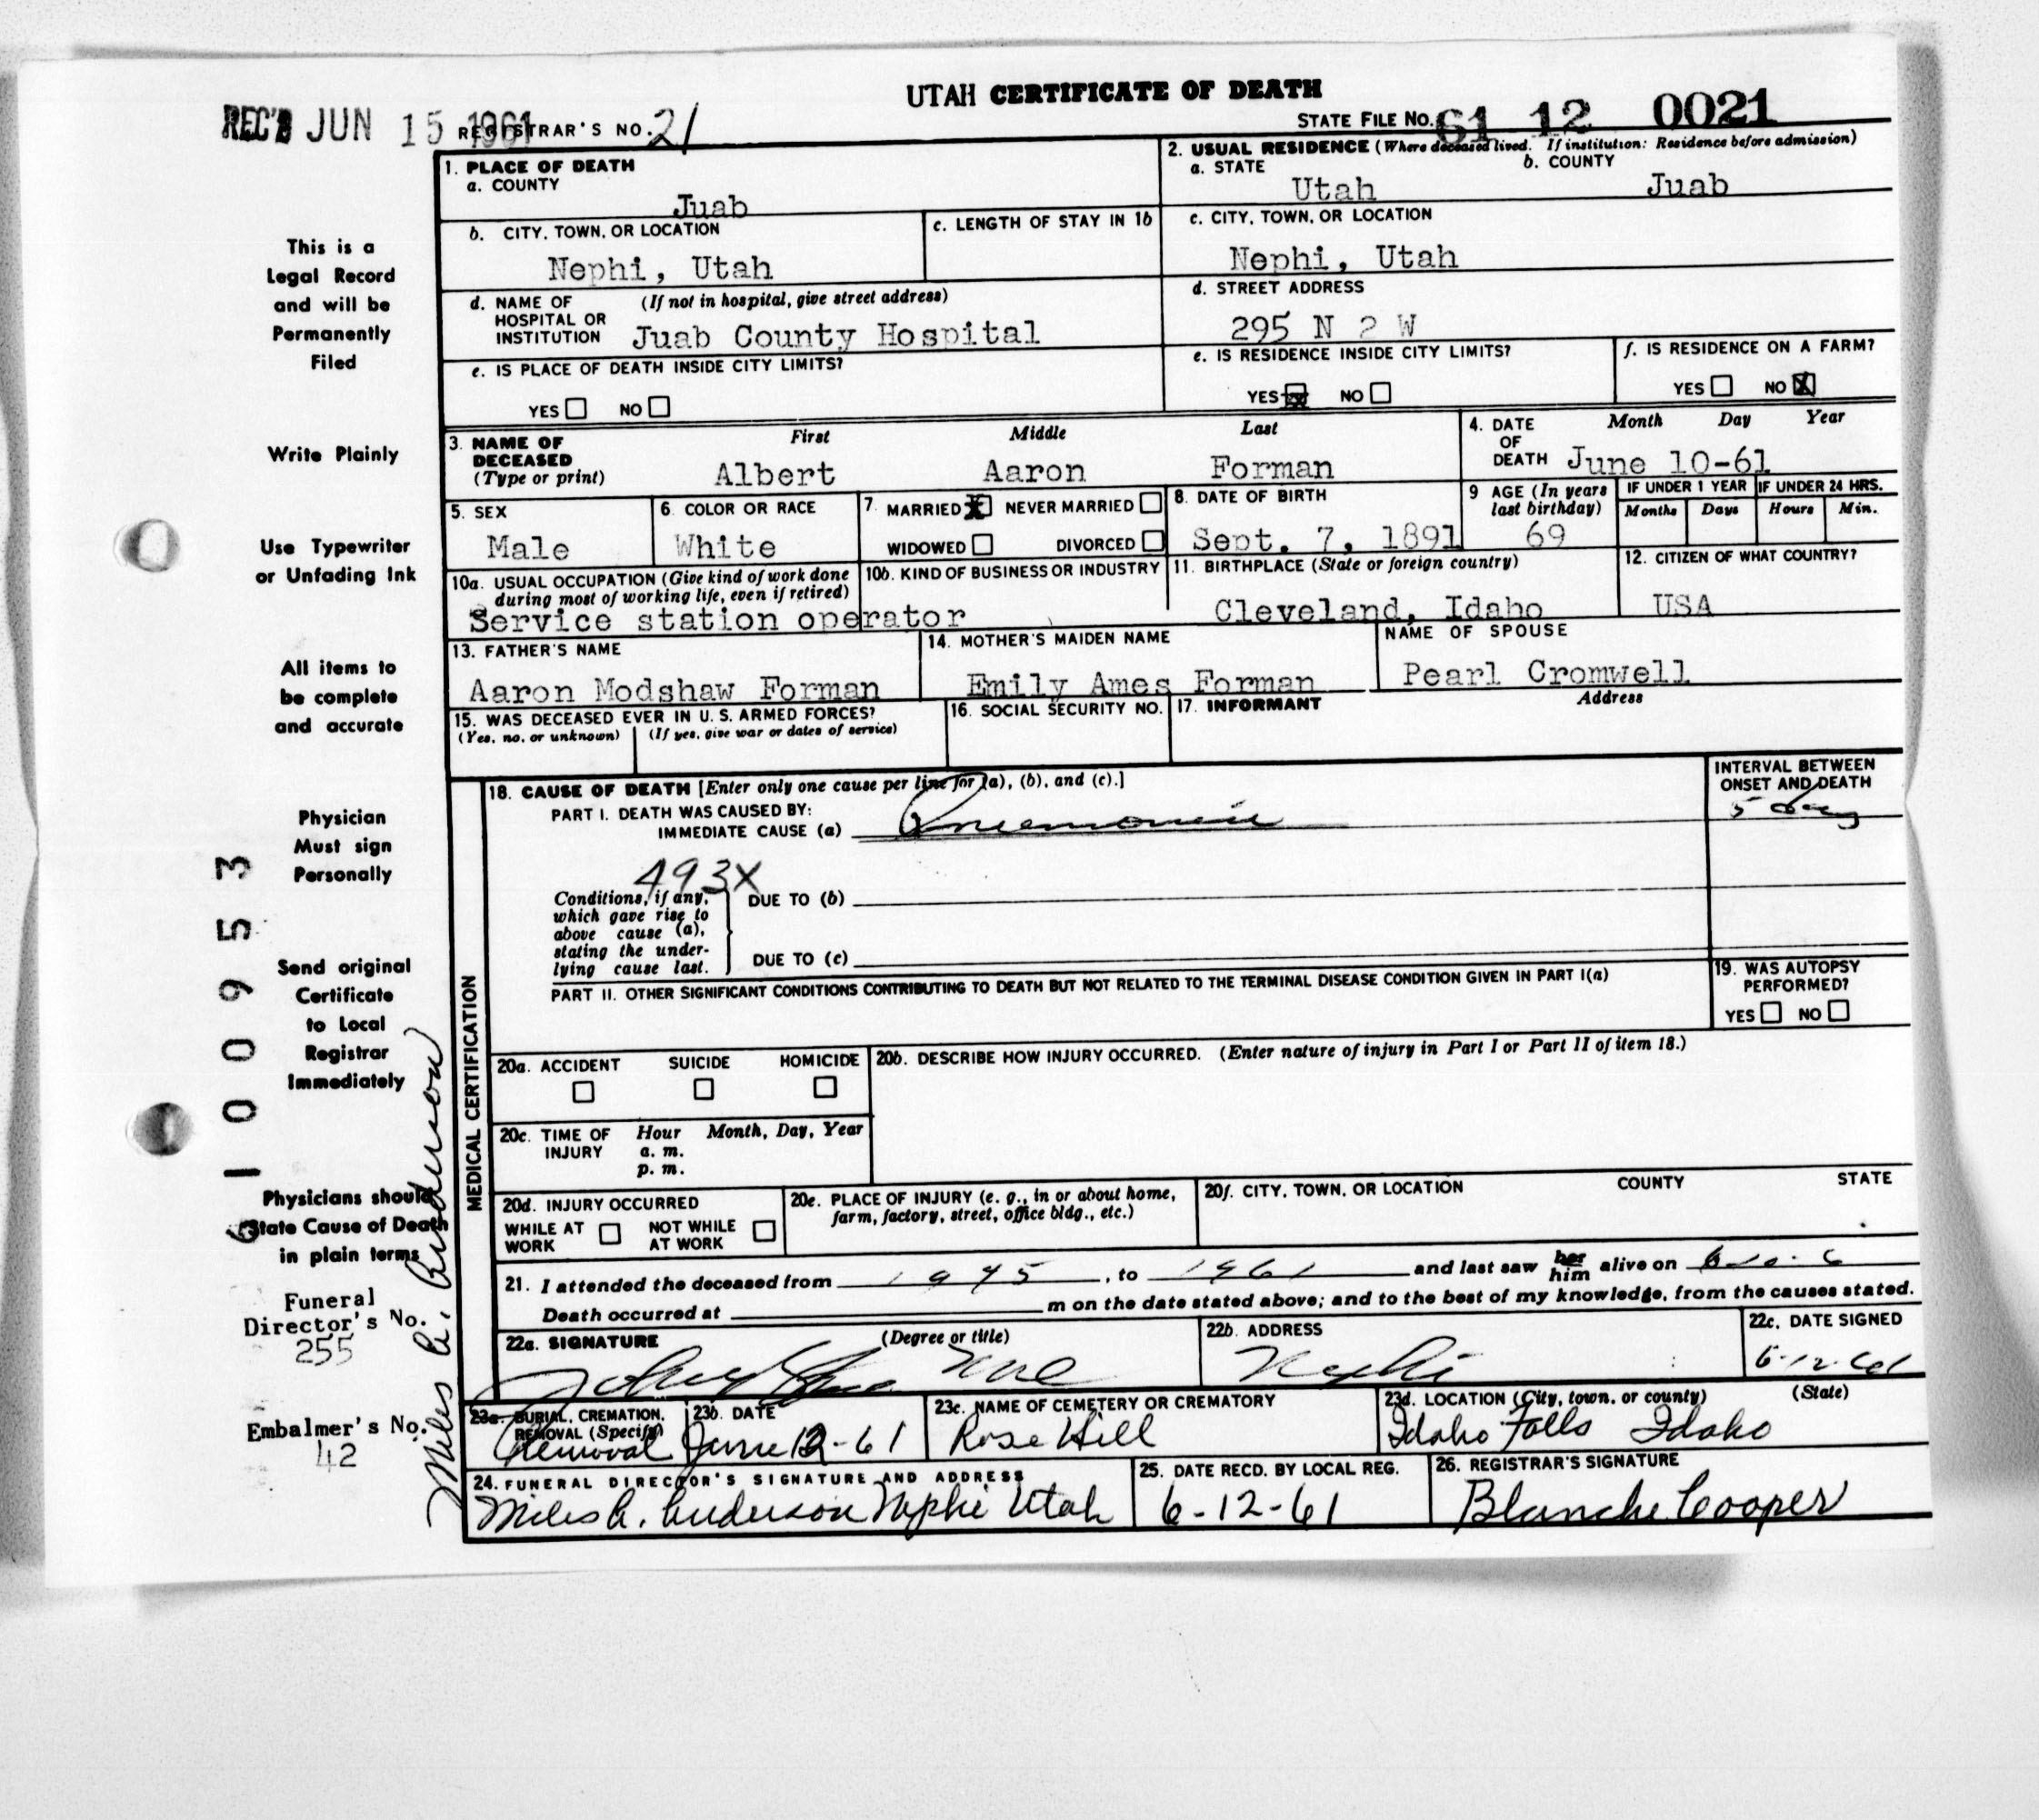 UTAH CERTIFICATE OF DEATH
REC'D JUN 15 1961 REGISTRAR'S NO. 21
STATE FILE NO. 61 12 0021
1. PLACE OF DEATH
a. COUNTY
Juab
2. USUAL RESIDENCE (Where deceased lived. If institution: Residence before admission)
a. STATE
Utah
b. COUNTY
Juab
b. CITY, TOWN, OR LOCATION
Nephi, Utah
c. LENGTH OF STAY IN 1b
c. CITY, TOWN, OR LOCATION
Nephi, Utah
d. NAME OF HOSPITAL OR INSTITUTION
(If not in hospital, give street address)
Juab County Hospital
d. STREET ADDRESS
295 N 2 W
e. IS PLACE OF DEATH INSIDE CITY LIMITS?
YES NO
e. IS RESIDENCE INSIDE CITY LIMITS?
YES X NO
f. IS RESIDENCE ON A FARM?
YES NO X
3. NAME OF DECEASED
(Type or print)
First Middle Last
Albert Aaron Forman
4. DATE OF DEATH
Month Day Year
June 10-61
5. SEX
Male
6. COLOR OR RACE
White
7. MARRIED X NEVER MARRIED
WIDOWED DIVORCED
8. DATE OF BIRTH
Sept. 7, 1891
9 AGE (In years last birthday)
69
IF UNDER 1 YEAR
Months Days
IF UNDER 24 HRS.
Hours Min.
10a. USUAL OCCUPATION (Give kind of work done during most of working life, even if retired)
Service station operator
10b. KIND OF BUSINESS OR INDUSTRY
11. BIRTHPLACE (State or foreign country)
Cleveland, Idaho
12. CITIZEN OF WHAT COUNTRY?
USA
13. FATHER'S NAME
Aaron Modshaw Forman
14. MOTHER'S MAIDEN NAME
Emily Ames Forman
NAME OF SPOUSE
Pearl Cromwell
15. WAS DECEASED EVER IN U. S. ARMED FORCES?
(Yes, no, or unknown) (If yes, give war or dates of service)
16. SOCIAL SECURITY NO.
17. INFORMANT
Address
MEDICAL CERTIFICATION
18. CAUSE OF DEATH [Enter only one cause per line for (a), (b), and (c).]
INTERVAL BETWEEN ONSET AND DEATH
PART I. DEATH WAS CAUSED BY:
IMMEDIATE CAUSE (a) Pneumonia
5 day
493X
Conditions, if any, which gave rise to above cause (a), stating the underlying cause last.
DUE TO (b)
DUE TO (c)
PART II. OTHER SIGNIFICANT CONDITIONS CONTRIBUTING TO DEATH BUT NOT RELATED TO THE TERMINAL DISEASE CONDITION GIVEN IN PART I(a)
19. WAS AUTOPSY PERFORMED?
YES NO
20a. ACCIDENT SUICIDE HOMICIDE
20b. DESCRIBE HOW INJURY OCCURRED. (Enter nature of injury in Part I or Part II of item 18.)
20c. TIME OF INJURY
Hour Month, Day, Year
a. m.
p. m.
20d. INJURY OCCURRED
WHILE AT WORK NOT WHILE AT WORK
20e. PLACE OF INJURY (e. g., in or about home, farm, factory, street, office bldg., etc.)
20f. CITY, TOWN, OR LOCATION COUNTY STATE
21. I attended the deceased from 1945, to 1961 and last saw her him alive on 6-10-6
Death occurred at m on the date stated above; and to the best of my knowledge, from the causes stated.
22a. SIGNATURE (Degree or title)
22b. ADDRESS
Nephi
22c. DATE SIGNED
6-12-61
23a. BURIAL, CREMATION, REMOVAL (Specify)
Removal
23b. DATE
June 12-61
23c. NAME OF CEMETERY OR CREMATORY
Rose Hill
23d. LOCATION (City, town, or county) (State)
Idaho Falls Idaho
24. FUNERAL DIRECTOR'S SIGNATURE AND ADDRESS
Miles A. Anderson Nephi Utah
25. DATE RECD. BY LOCAL REG.
6-12-61
26. REGISTRAR'S SIGNATURE
Blanche Cooper
This is a
Legal Record
and will be
Permanently
Filed
Write Plainly
Use Typewriter
or Unfading Ink
All items to
be complete
and accurate
Physician
Must sign
Personally
Send original
Certificate
to Local
Registrar
Immediately
Physicians should
State Cause of Death
in plain terms
Funeral
Director's No.
255
Embalmer's No.
42
6100953
Miles A. Anderson